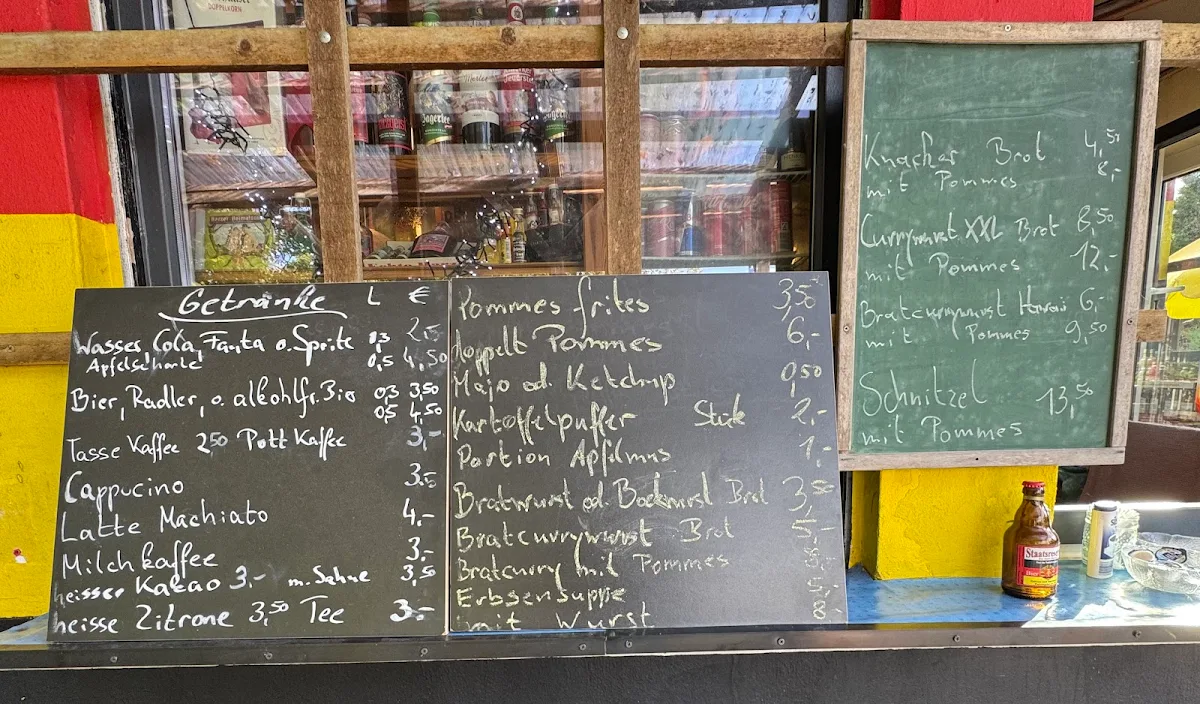 DOPPELKORN
Jagertee
Jagertee
Getränke L €
Wasser, Cola, Fanta o. Sprite 0,3 2,50
Apfelschorle 0,5 4,50
Bier, Radler, o. alkohlfr. Bier 0,3 3,50
0,5 4,50
Tasse Kaffee 2 50 Pott Kaffee 3,-
Cappucino 3,50
Latte Machiato 4,-
Milchkaffee 3,-
heisser Kakao 3.- m. Sahne 3,50
heisse Zitrone 3,50 Tee 3.-
Pommes frites 3,50
doppelt Pommes 6,-
Majo od. Ketchup 0,50
Kartoffelpuffer Stück 2,-
Portion Apfelmus 1,-
Bratwurst od Bockwurst Brot 3,50
Bratcurrywurst Brot 5,-
Bratcurry mit Pommes 8,-
Erbsensuppe 5,-
mit Wurst 8-
Knacker Brot 4,50
mit Pommes 8,-
Currywurst XXL Brot 8,50
mit Pommes 12,-
Bratcurrywurst Hawai 6,-
mit Pommes 9,50
Schnitzel 13,50
mit Pommes